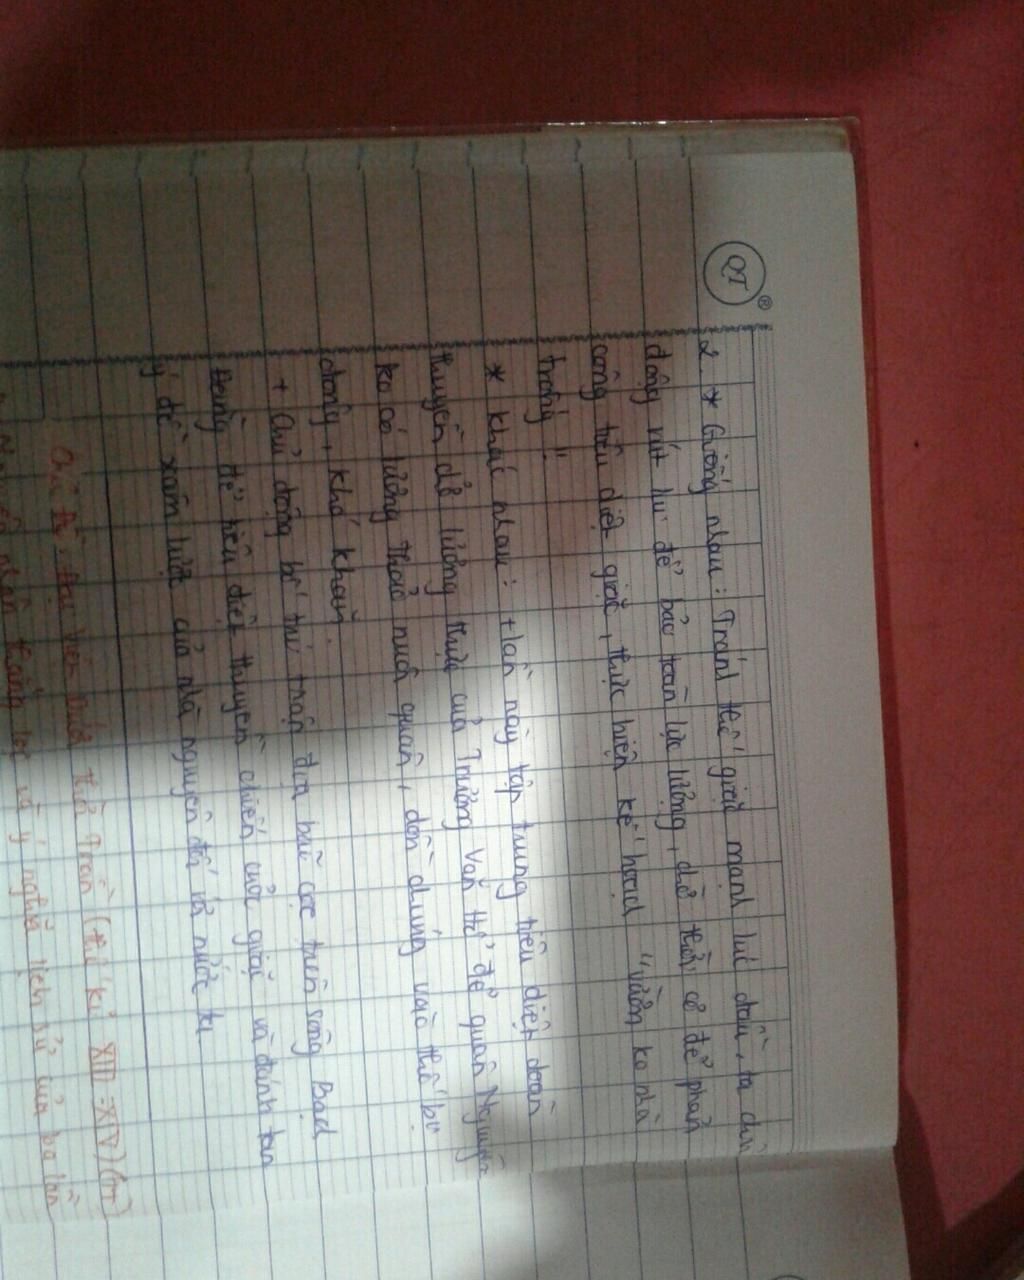 QT ®
2. * Giống nhau: Tránh thế giặc mạnh lúc đầu, ta chủ
động rút lui để bảo toàn lực lượng, chờ thời cơ để phản
công tiêu diệt giặc, thực hiện kế hoạch "vườn ko nhà
trống"
* Khác nhau: + Lần này tập trung tiêu diệt đoàn
thuyền chở lương thực của Trương Văn Hổ để quân Nguyên
ko có lương thảo nuôi quân, dồn chúng vào thế bị
động, khó khăn
+ Chủ động bố trí trận địa bãi cọc trên sông Bạch
Đằng để tiêu diệt thuyền chiến của giặc và đánh tan
ý đồ xâm lược của nhà nguyên đối với nước ta
dưới thời Trần (thế kỉ XIII-XIV) (tt)
Nguyên nhân thắng lợi và ý nghĩa lịch sử của ba lần